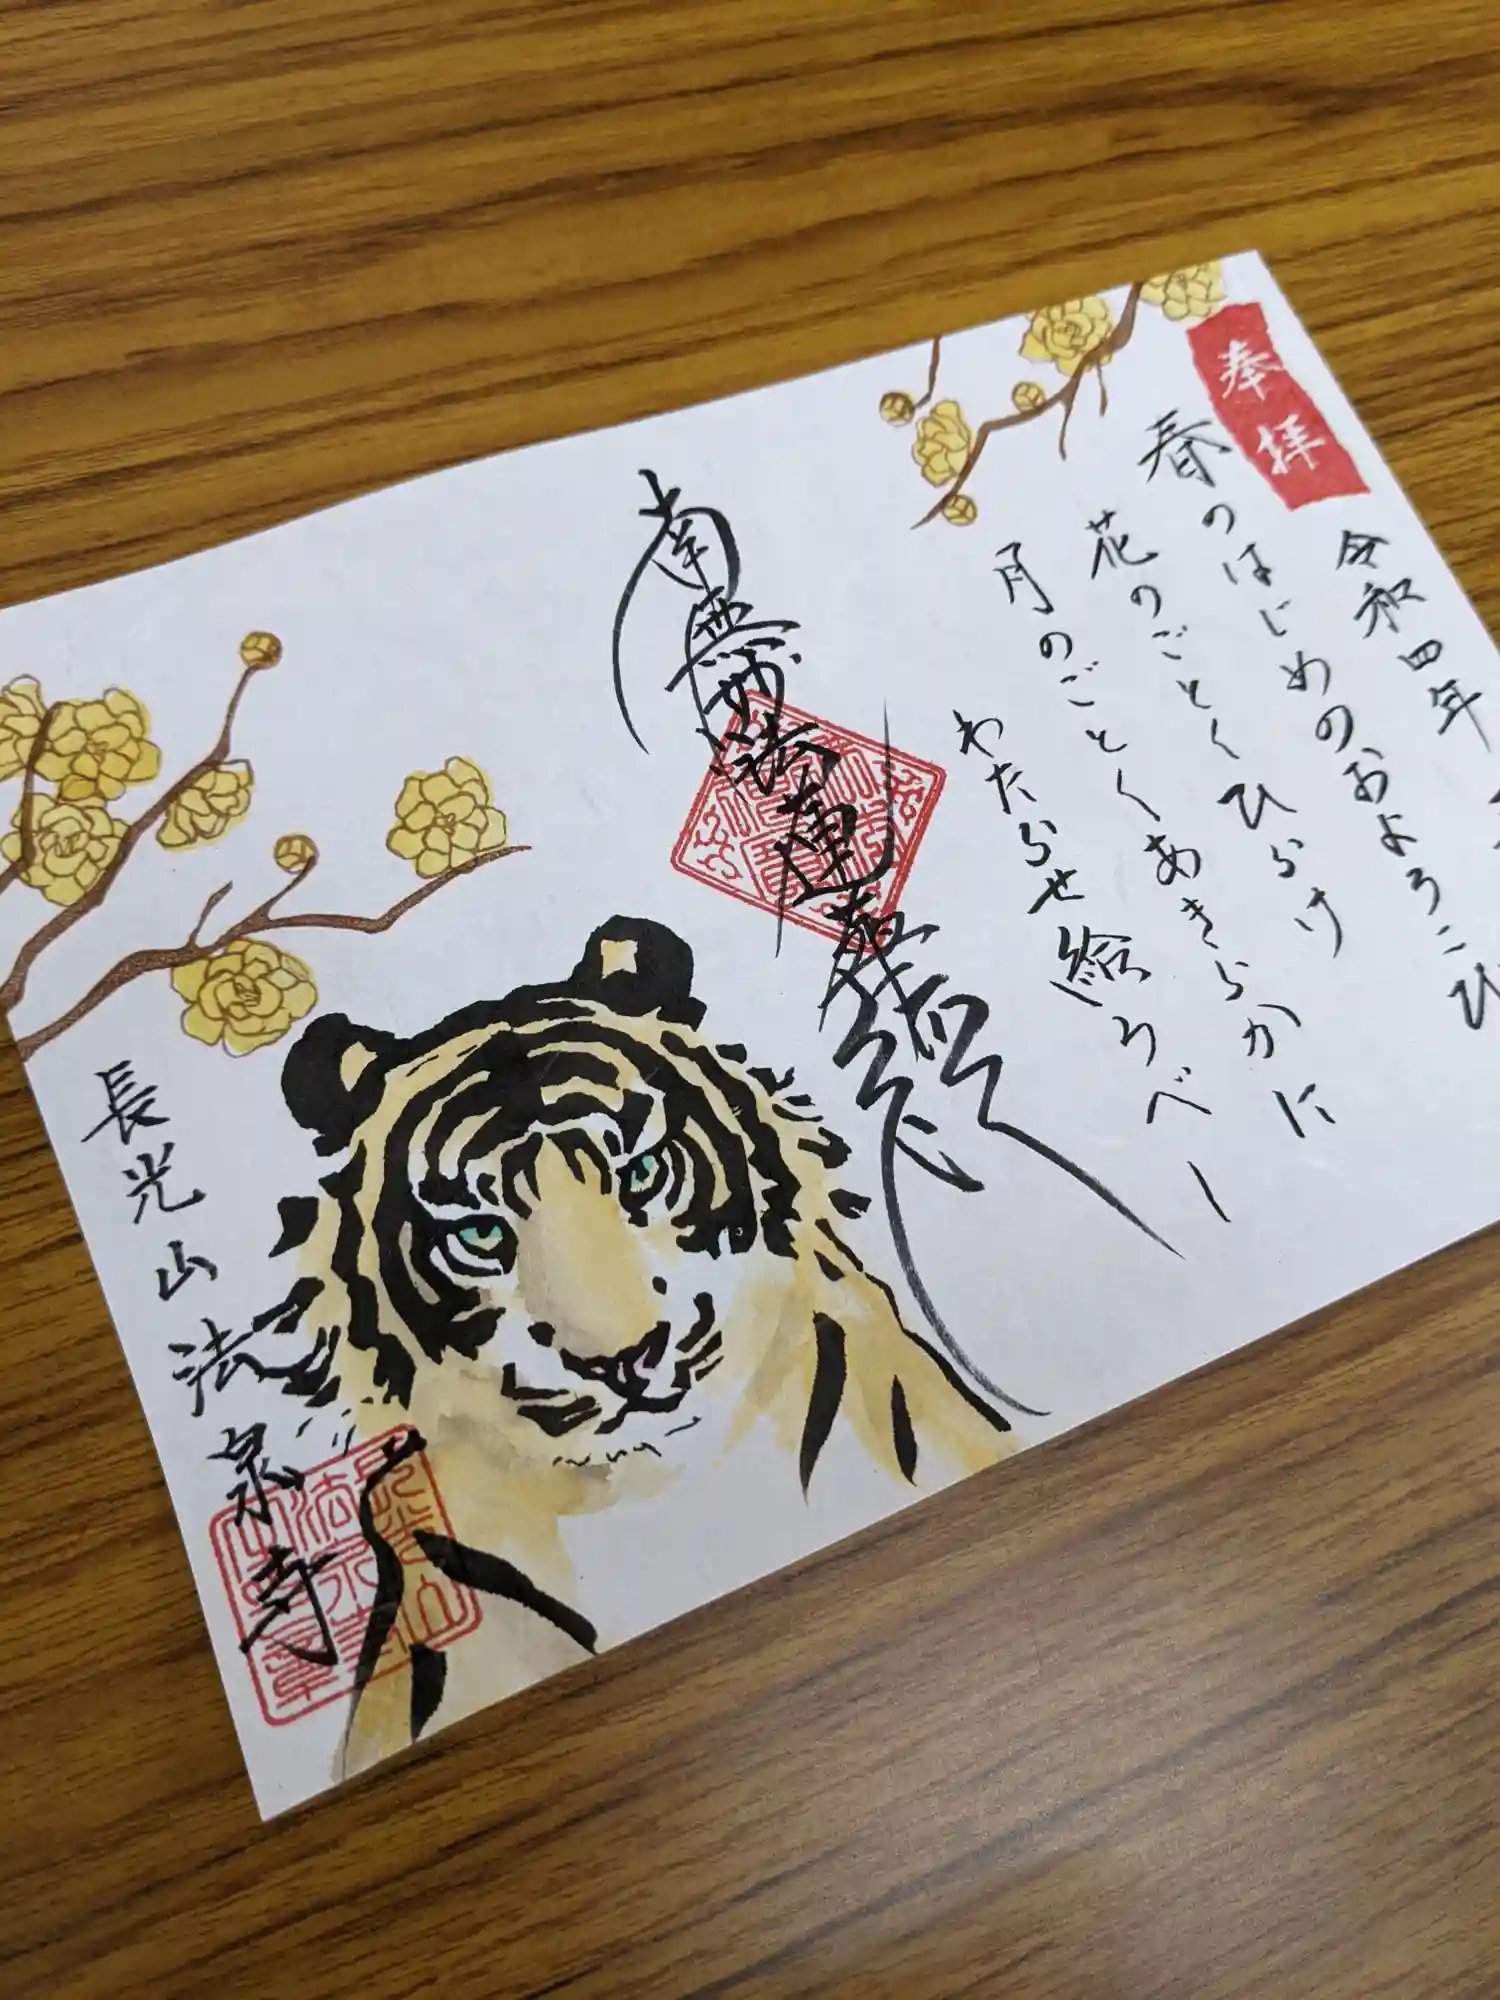 奉拝
令和四年
春のはじめのおよろこび
花のごとくひらけ
月のごとくあきらかに
わたらせ給うべし
南無妙法蓮華経
長光山
法泉寺